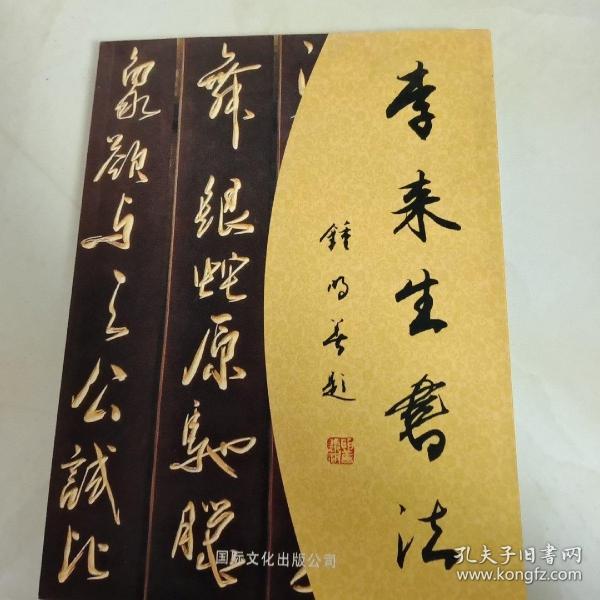 李来生书法
鍾明善题
舞 银蛇原驰腊
象欲与天公試比
国际文化出版公司
孔夫子旧书网
www.kongfz.com